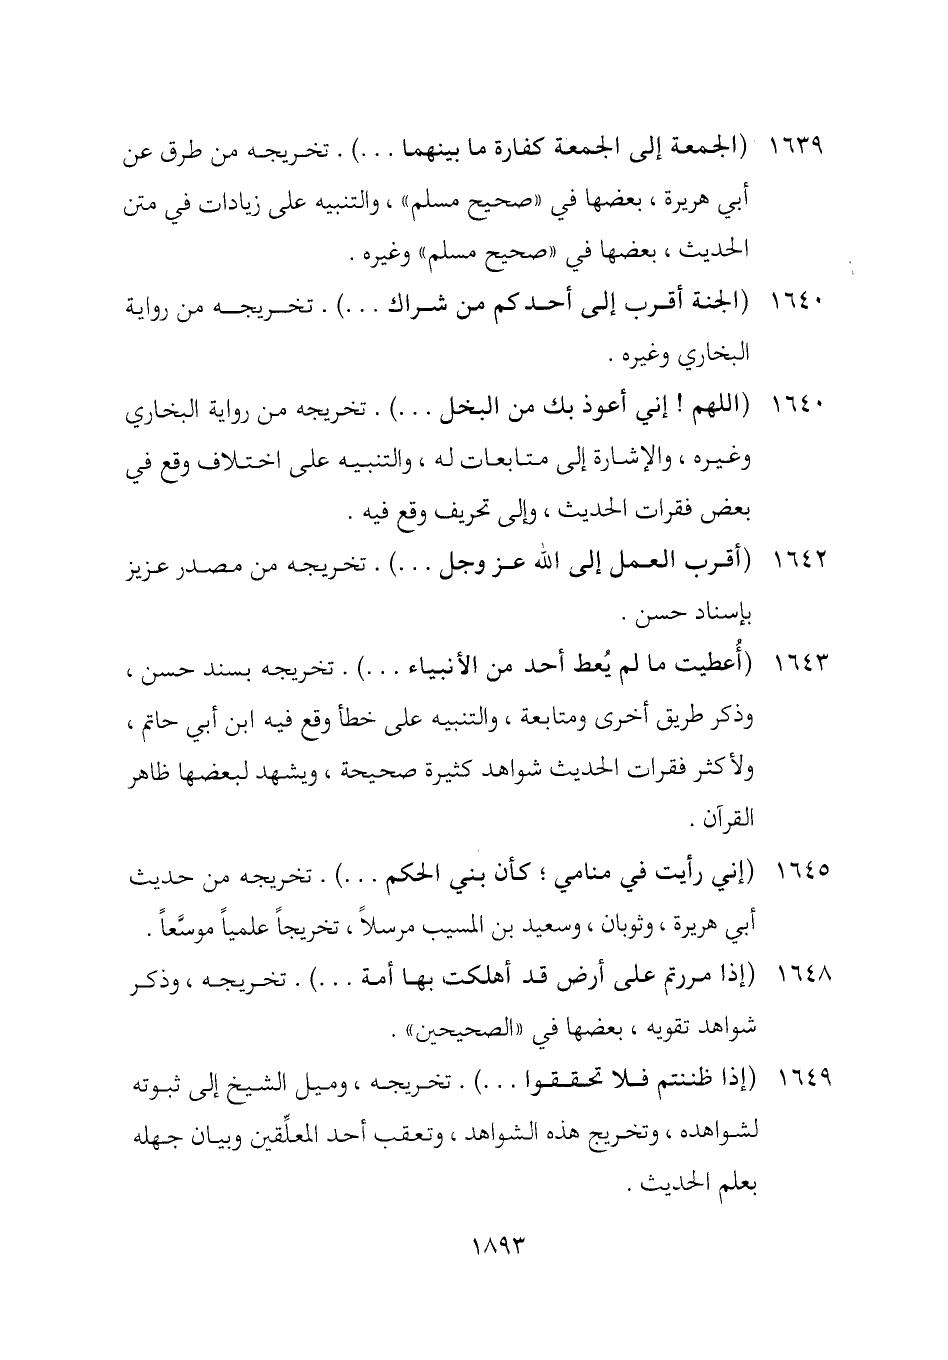 ١٦٣٩ (الجمعة إلى الجمعة كفارة ما بينهما ...) . تخريجه من طرق عن
أبي هريرة ، بعضها في «صحيح مسلم» ، والتنبيه على زيادات في متن
الحديث ، بعضها في «صحيح مسلم» وغيره .
١٦٤٠ (الجنة أقرب إلى أحدكم من شراك ...) . تخريجه من رواية
البخاري وغيره .
١٦٤٠ (اللهم ! إني أعوذ بك من البخل ...) . تخريجه من رواية البخاري
وغيره ، والإشارة إلى متابعات له ، والتنبيه على اختلاف وقع في
بعض فقرات الحديث ، وإلى تحريف وقع فيه .
١٦٤٢ (أقرب العمل إلى الله عز وجل ...) . تخريجه من مصدر عزيز
بإسناد حسن .
١٦٤٣ (أُعطيت ما لم يُعط أحد من الأنبياء ...) . تخريجه بسند حسن ،
وذكر طريق أخرى ومتابعة ، والتنبيه على خطأ وقع فيه ابن أبي حاتم ،
ولأكثر فقرات الحديث شواهد كثيرة صحيحة ، ويشهد لبعضها ظاهر
القرآن .
١٦٤٥ (إني رأيت في منامي ؛ كأن بني الحكم ...) . تخريجه من حديث
أبي هريرة ، وثوبان ، وسعيد بن المسيب مرسلاً ، تخريجاً علمياً موسَّعاً .
١٦٤٨ (إذا مررتم على أرض قد أهلكت بها أمة ...) . تخريجه ، وذكر
شواهد تقويه ، بعضها في «الصحيحين» .
١٦٤٩ (إذا ظننتم فلا تحققوا ...) . تخريجه ، وميل الشيخ إلى ثبوته
لشواهده ، وتخريج هذه الشواهد ، وتعقب أحد المعلِّقين وبيان جهله
بعلم الحديث .
١٨٩٣